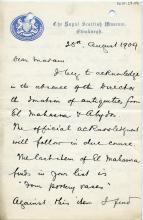 The Royal Scottish Museum,
Edinburgh.
25th August 1909
Dear Madam
I beg to acknowledge
in the absence of the Director
the donation of antiquities from
El Mahasna & Abydos
The official acknowledgment
will follow in due course.
The last item of El Mahasna
finds in your list is
"Four pottery vases"
Against this item I find